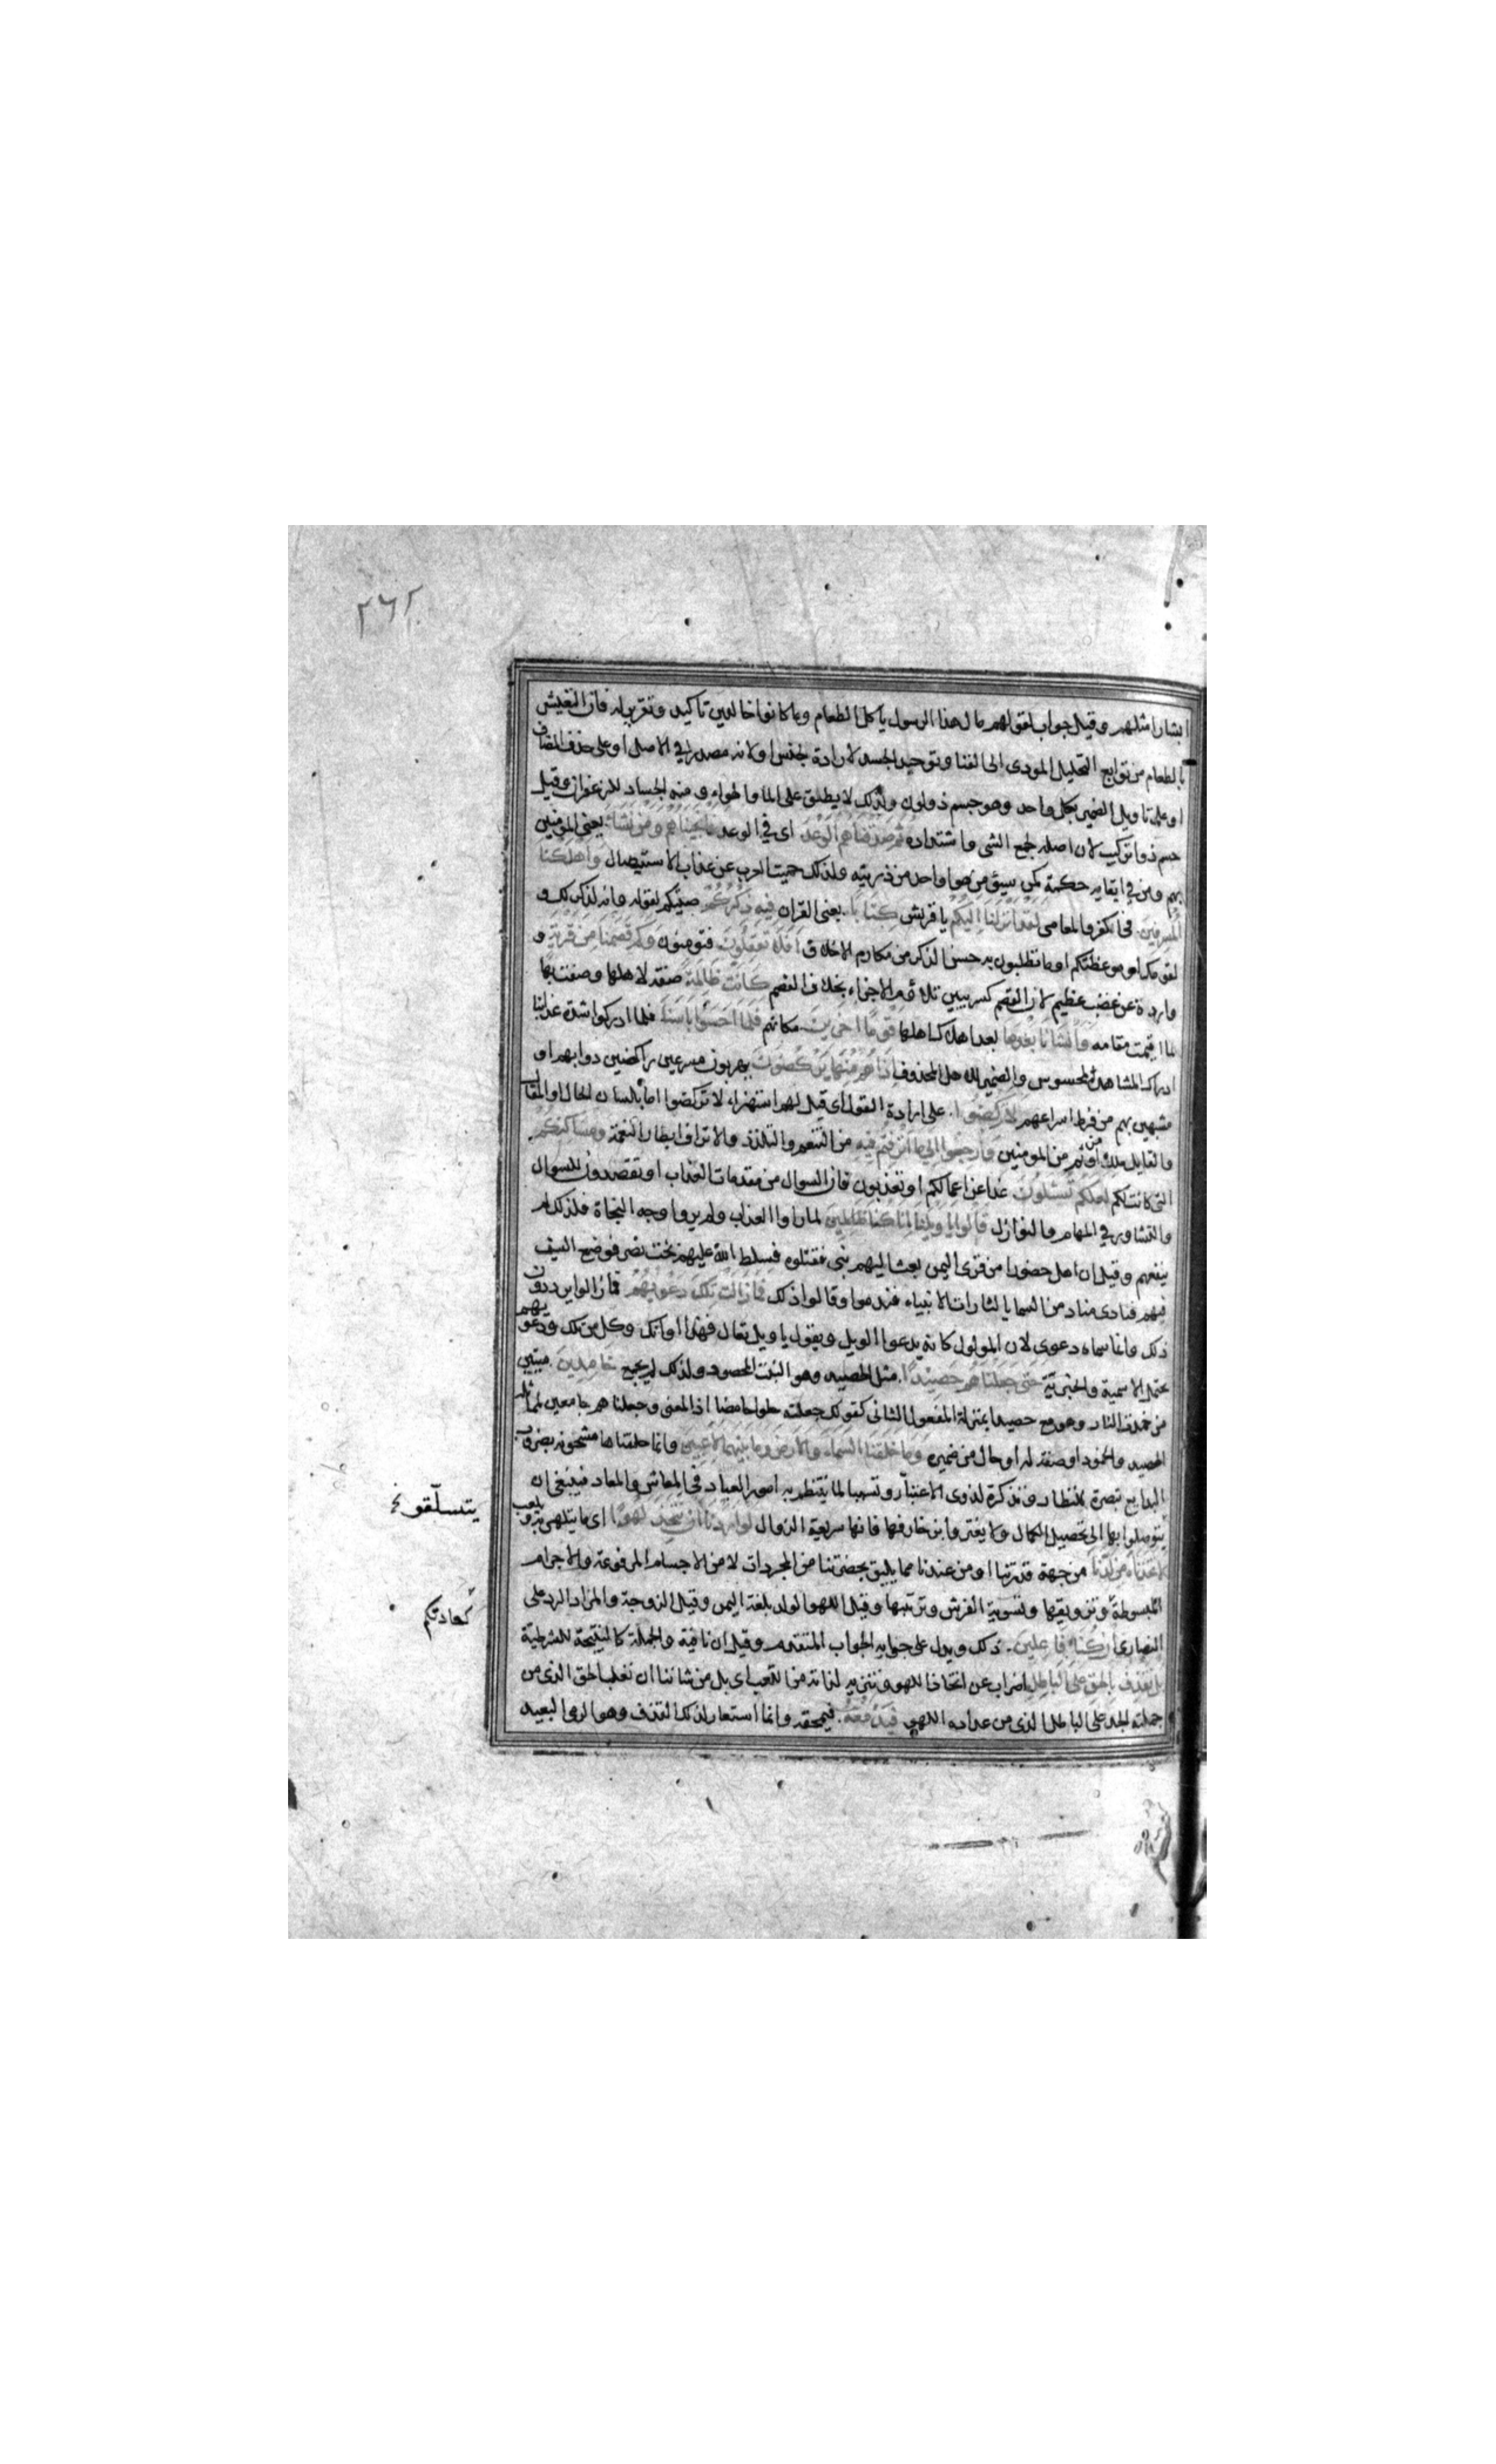 ٢٦٢
ابشارا مثلهم وقيل جواب لقولهم مال هذا الرسول ياكل الطعام وما كانوا خالدين تاكيد وتقرير له فان التعيش
بالطعام من توابع التحليل المودى الى الفنا وتوحيد الجسد لارادة الجنس او لانه مصدر في الاصل او على حذف المضاف
او على تاويل الضمير بكل واحد وهو جسم ذو لون ولذلك لا يطلق على الما والهواء ومنه الجساد للزعفران وقيل
جسم ذو تركيب لان اصله لجمع الشى واشتداده ثُمَّ صَدَقْنَاهُمُ الْوَعْدَ اى في الوعد فَاَنْجَيْنَاهُمْ وَمَنْ نَشَاءُ يعنى المؤمنين
بهم ومن في ابقايه حكمة كمن سيؤمن هو او احد من ذريته ولذلك حميت العرب عن عذاب الاستيصال وَاَهْلَكْنَا
الْمُسْرِفِينَ فى الكفر والمعاصى لَقَدْ اَنْزَلْنَا اِلَيْكُمْ يا قريش كِتَابًا يعنى القران فِيهِ ذِكْرُكُمْ صيتكم لقوله وانه لذكر لك و
لقومك او موعظتكم او ما تطلبون به حسن الذكر من مكارم الاخلاق اَفَلَا تَعْقِلُونَ فتومنون وَكَمْ قَصَمْنَا مِنْ قَرْيَةٍ و
واردة عن غضب عظيم لان القصم كسر يبين تلاؤم الاجزاء بخلاف الفصم كَانَتْ ظَالِمَةً صفة لاهلها وصفت بها
لما اقيمت مقامه وَاَنْشَاْنَا بَعْدَهَا بعد اهلاك اهلها قَوْمًا اٰخَرِينَ مكانهم فَلَمَّا اَحَسُّوا بَاْسَنَا فلما ادركوا شدة عذابنا
ادراك المشاهد المحسوس والضمير للاهل المحذوف اِذَا هُمْ مِنْهَا يَرْكُضُونَ يهربون مسرعين راكضين دوابهم او
مشبهين بهم من فرط اسراعهم لَا تَرْكُضُوا على ارادة القول اى قيل لهم استهزاء لا تركضوا اما بلسان الحال او المقال
والقايل ملك او من ثم من المومنين وَارْجِعُوا اِلَى مَا اُتْرِفْتُمْ فِيهِ من التنعم والتلذذ والاتراف ابطار النعمة وَمَسَاكِنِكُمْ
التى كانت لكم لَعَلَّكُمْ تُسْئَلُونَ غدا عن اعمالكم او تعذبون فان السوال من مقدمات العذاب او تقصدون للسوال
والتشاور في المهام والنوازل قَالُوا يَا وَيْلَنَا اِنَّا كُنَّا ظَالِمِينَ لما راوا العذاب ولم يروا وجه النجاة فلذلك لم
ينفعهم وقيل ان اهل حضورا من قرى اليمن بعث اليهم نبى فقتلوه فسلط الله عليهم بخت نصر فوضع السيف
فيهم فنادى مناد من السما يا لثارات الانبياء فندموا وقالوا ذلك فَمَا زَالَتْ تِلْكَ دَعْوَيهُمْ فما زالوا يرددون
ذلك وانما سماه دعوى لان المولول كانه يدعوا الويل ويقول يا ويل تعال فهذا اوانك وكل من تلك ودعويهم
يحتمل الاسمية والخبرية حَتَّى جَعَلْنَاهُمْ حَصِيدًا مثل الحصيد وهو النبت المحصود ولذلك لم يجمع خَامِدِينَ ميتين
من خمدت النار وهو مع حصيدا بمنزلة المفعول الثانى كقولك جعلته حلوا حامضا اذ المعنى وجعلناهم جامعين لمماثلة
الحصيد والخمود او صفة له او حال من ضميره وَمَا خَلَقْنَا السَّمَاءَ وَالْاَرْضَ وَمَا بَيْنَهُمَا لَاعِبِينَ وانما خلقناها مشحونه بضروب
البدايع تبصرة للنظار وتذكرة لذوى الاعتبار وتسببا لما ينتظم به امور العباد فى المعاش والمعاد فينبغى ان
يتوصلوا بها الى تحصيل الكمال ولا يغتروا بزخارفها فانها سريعة الزوال لَوْ اَرَدْنَا اَنْ نَتَّخِذَ لَهْوًا اى ما يتلهى به ويلعب
لَاتَّخَذْنَاهُ مِنْ لَدُنَّا من جهة قدرتنا او من عندنا مما يليق بحضرتنا من المجردات لا من الاجسام المرفوعة والاجرام
المبسوطة وتزويقها وتسوية الفرش وترتيبها وقيل اللهو الولد بلغة اليمن وقيل الزوجة والمراد الرد على
النصارى اِنْ كُنَّا فَاعِلِينَ ذلك ويدل على جوابه الجواب المتقدم وقيل ان نافية والجملة كالنتيجة للشرطية
بَلْ نَقْذِفُ بِالْحَقِّ عَلَى الْبَاطِلِ اضراب عن اتخاذ اللهو وتنزيه لذاته من اللعب اى بل من شاننا ان نغلب الحق الذى من
جملته الجد على الباطل الذى من عداده اللهو فَيَدْمَغُهُ فيمحقه وانما استعار لذلك القذف وهو الرمى البعيد
يتسلقون
كعادتكم